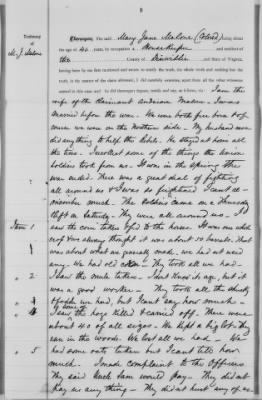 8
Testimony
of
M. J. Malone
Thereupon, The said Mary Jane Malone (Colored) being about
the age of 40 years, by occupation a Housekeeper and resident of
the County of Dinwiddie and State of Virginia,
having been by me first examined and sworn to testify the truth, the whole truth and nothing but the
truth, in the matter of the claim aforesaid, I did carefully examine, apart from all the other witnesses
named in this case and he did thereupon depose, testify and say, as follows, viz: I am the
wife of the claimant Anderson Malone. I was
married before the war. We were both free born & of
course we were on the northern side. My husband never
did anything to help the Rebels. He stayed at home all
the time. I saw some of the things the Union
soldiers took from us. It was in the Spring the
war ended. There was a great deal of fighting
all around us & I was so frightened I cant re-
member much. The soldiers came on a Thursday
& left on Saturday. They were all around us. I
Item 1
saw the corn taken & fed to the horses. It was our whole
crop. We always thought it was about 50 barrels. that
was about what we generally made. we had not used
any. We had old corn. They took all we had.
" 2
I saw the mule taken. I dont know its age, but it
was a good worker. They took all the shucks
" 3
& fodder we had, but I cant say how much.
" 4
I saw the hogs killed & carried off. There were
about 40 of all sizes. We kept a big lot. They
ran in the woods. We lost all we had. We
" 5
had some oats taken but I cant tell how
much. I made complaint to the Officers
They said Uncle Sam would pay. They did not
pay us any thing. They did not hurt any of us